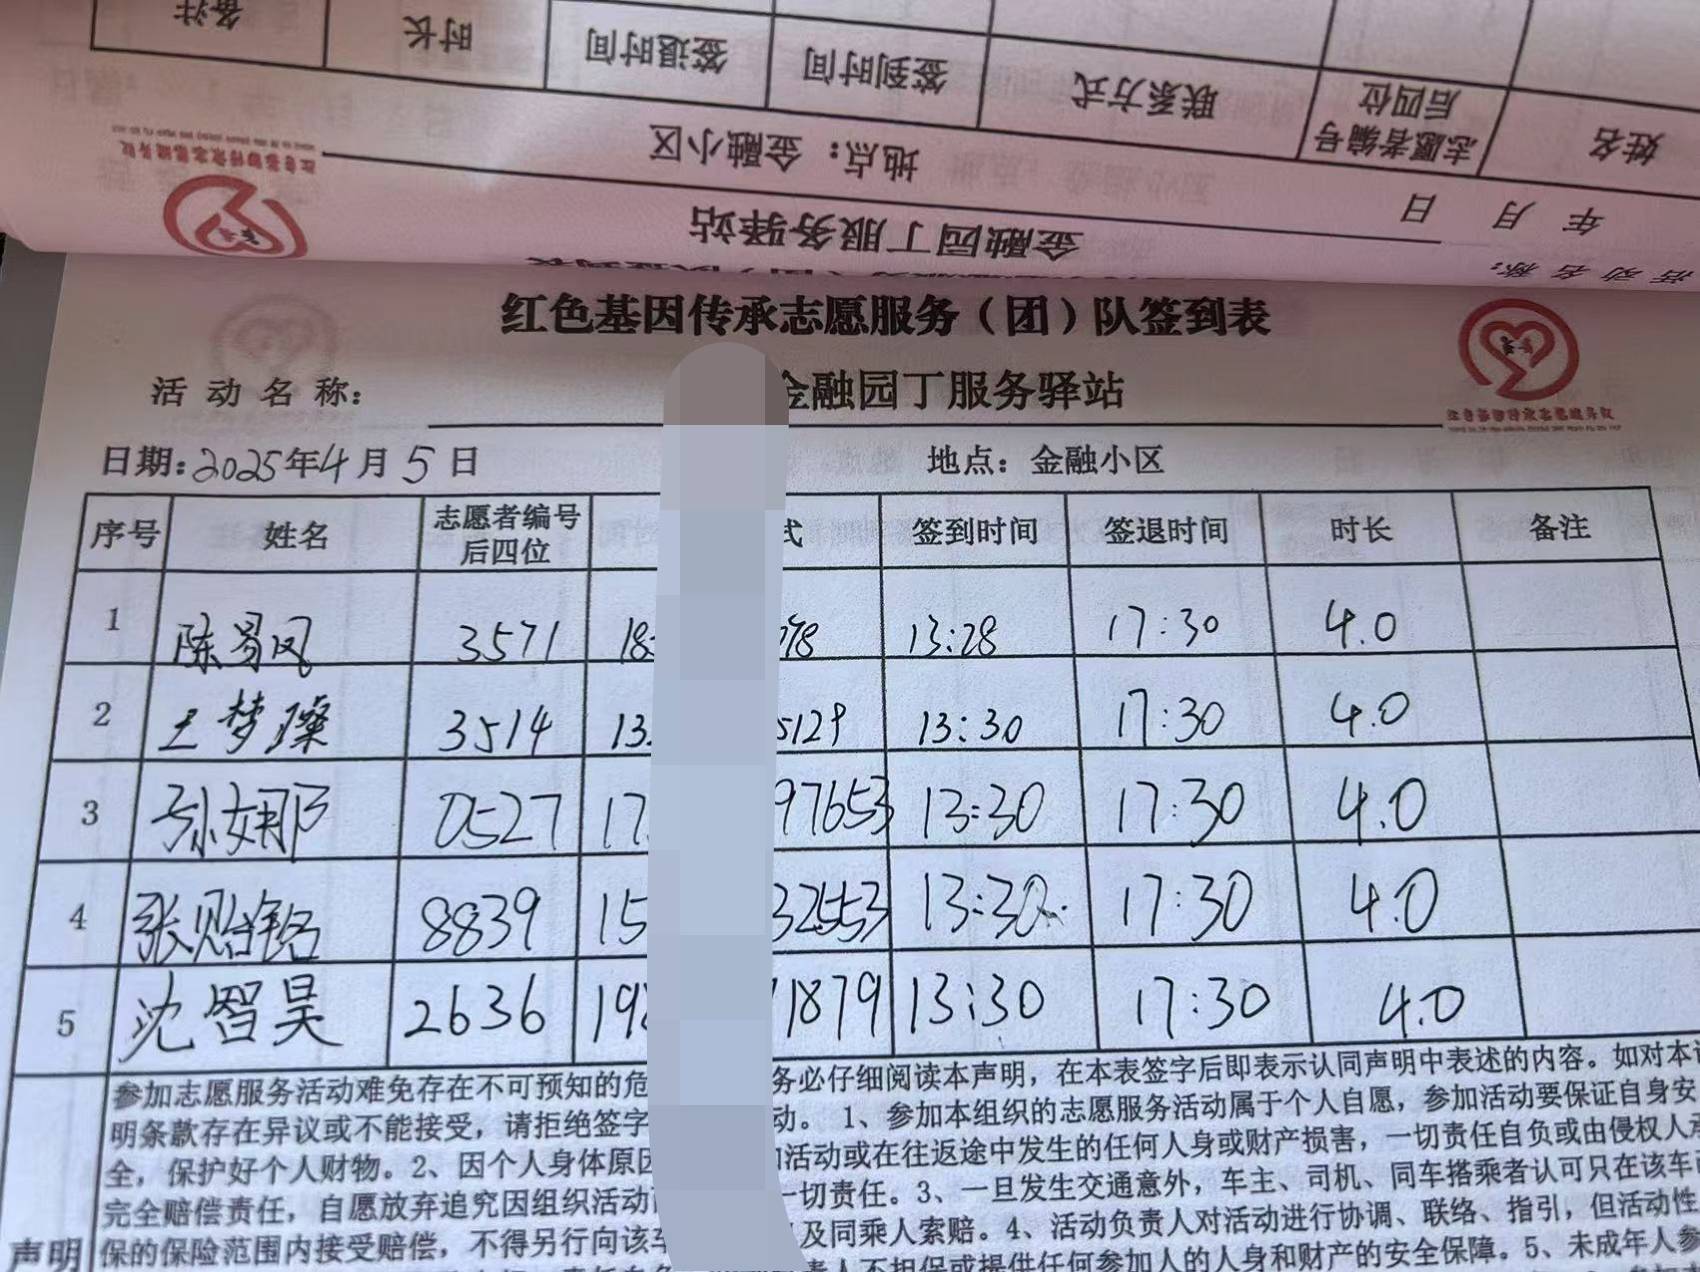 备注 时长 签退时间 签到时间 联系方式 志愿者编号后四位 姓名
地点：金融小区
年 月 日
金融园丁服务驿站
活动名称：
红色基因传承志愿服务（团）队签到表
活动名称： 金融园丁服务驿站
日期：2025年4月5日 地点：金融小区
序号 姓名 志愿者编号后四位 式 签到时间 签退时间 时长 备注
1 陈易凤 3571 18 78 13:28 17:30 4.0
2 王梦璨 3514 13 5129 13:30 17:30 4.0
3 孙娜 0527 17 97653 13:30 17:30 4.0
4 张贻铭 8839 15 32553 13:30 17:30 4.0
5 沈智昊 2636 19 1879 13:30 17:30 4.0
参加志愿服务活动难免存在不可预知的危 务必仔细阅读本声明，在本表签字后即表示认同声明中表述的内容。如对本
明条款存在异议或不能接受，请拒绝签字 动。1、参加本组织的志愿服务活动属于个人自愿，参加活动要保证自身安
全，保护好个人财物。2、因个人身体原因 活动或在往返途中发生的任何人身或财产损害，一切责任自负或由侵权人
完全赔偿责任，自愿放弃追究因组织活动 一切责任。3、一旦发生交通意外，车主、司机、同车搭乘者认可只在该车
声明 保的保险范围内接受赔偿，不得另行向该车 及同乘人索赔。4、活动负责人对活动进行协调、联络、指引，但活动性
责人不担保或提供任何参加人的人身和财产的安全保障。5、未成年人参